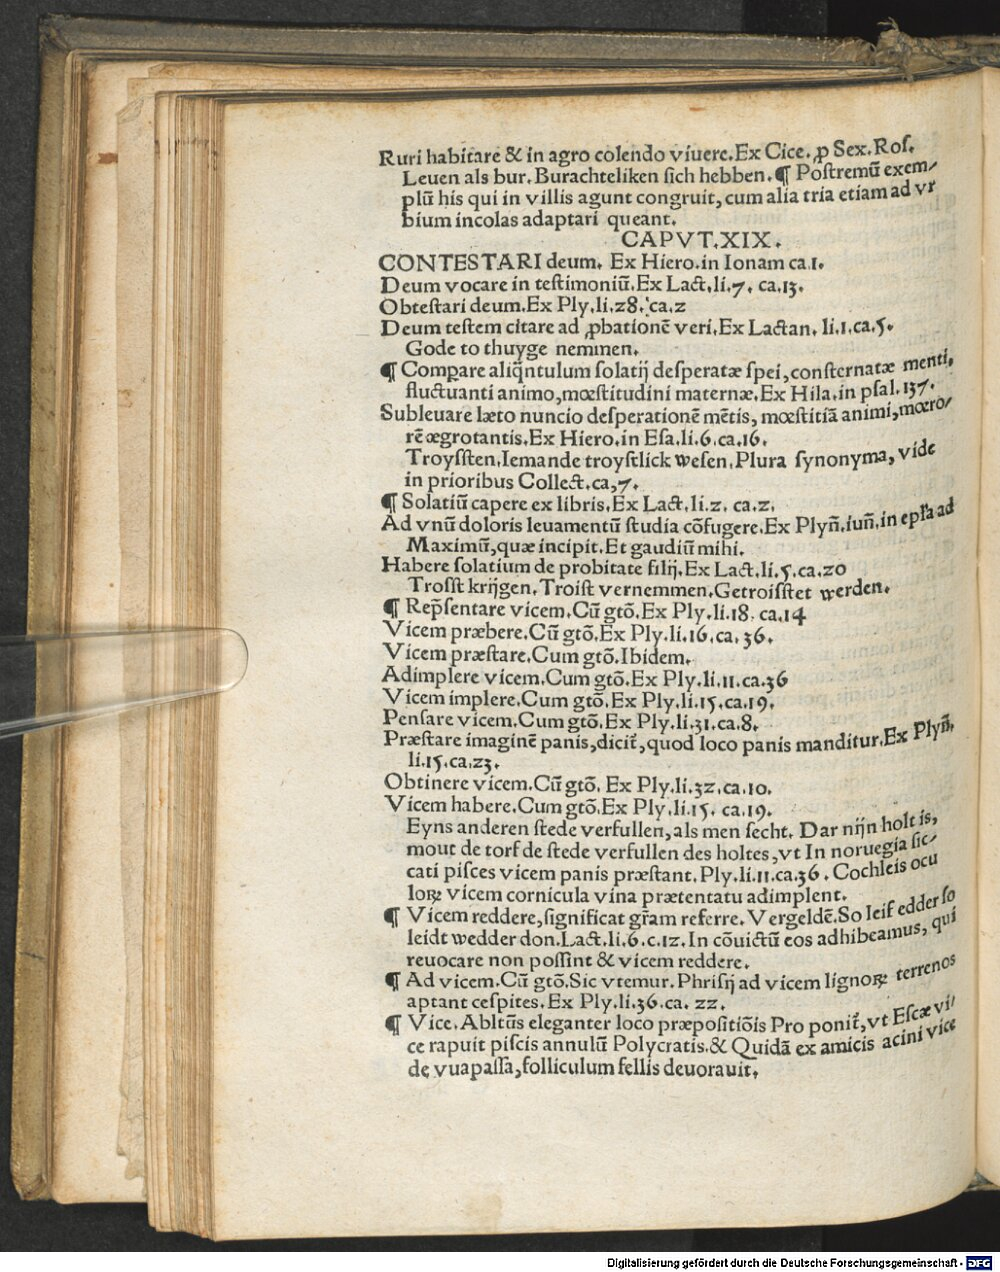 Ruri habitare & in agro colendo viuere. Ex Cice. ꝓ Sex. Roſ.
Leuen als bur. Burachteliken ſich hebben. ¶ Poſtremū exem⸗
plū his qui in villis agunt congruit, cum alia tria etiam ad vr
bium incolas adaptari queant.
CAPVT. XIX.
CONTESTARI deum. Ex Hiero. in Ionam ca. 1.
Deum vocare in teſtimoniū. Ex Lact. li. 7. ca. 13.
Obteſtari deum. Ex Ply. li. 28. ca. 2
Deum teſtem citare ad ꝓbationē veri. Ex Lactan. li. 1. ca. 5.
Gode to thuyge nemmen.
¶ Compare aliq̄ntulum ſolatij deſperatæ ſpei, conſternatæ menti,
fluctuanti animo, mœſtitudini maternæ. Ex Hila. in pſal. 137.
Subleuare læto nuncio deſperationē mētis, mœſtitiā animi, mœro⸗
rē ægrotantis. Ex Hiero. in Eſa. li. 6. ca. 16.
Troyſſten. Iemande troyſtlick weſen. Plura ſynonyma, vide
in prioribus Collect. ca, 7.
¶ Solatiū capere ex libris. Ex Lact. li. 2. ca. 2.
Ad vnū doloris leuamentū ſtudia cōfugere. Ex Plyn̄. iun̄. in epꝉa ad
Maximū, quæ incipit. Et gaudiū mihi.
Habere ſolatium de probitate filij. Ex Lact. li. 5. ca. 20
Troſſt krijgen. Troiſt vernemmen. Getroiſſtet werden.
¶ Rep̄ſentare vicem. Cū gtō. Ex Ply. li. 18. ca. 14
Vicem præbere. Cū gtō. Ex Ply. li. 16. ca. 36.
Vicem præſtare. Cum gtō. Ibidem.
Adimplere vicem. Cum gtō. Ex Ply. li. 11. ca. 36
Vicem implere. Cum gtō. Ex Ply. li. 15. ca. 19.
Penſare vicem. Cum gtō. Ex Ply. li. 31. ca. 8.
Præſtare imaginē panis, dicit̄, quod loco panis manditur. Ex Plyn̄.
li. 15. ca. 23.
Obtinere vicem. Cū gtō. Ex Ply. li. 32. ca. 10.
Vicem habere. Cum gtō. Ex Ply. li. 15. ca. 19.
Eyns anderen ſtede verfullen, als men ſecht. Dar nijn holt is,
mout de torf de ſtede verfullen des holtes, vt In noruegia ſic⸗
cati piſces vicem panis præſtant. Ply. li. 11. ca. 36. Cochleis ocu
loꝝ vicem cornicula vina prætentatu adimplent.
¶ Vicem reddere, ſignificat gr̄am referre. Vergeldē. So leif edder ſo
leidt wedder don. Lact. li. 6. c. 12. In cōuictū eos adhibeamus, qui
reuocare non poſſint & vicem reddere.
¶ Ad vicem. Cū gtō. Sic vtemur. Phriſij ad vicem lignoꝝ terrenos
aptant ceſpites. Ex Ply. li. 36. ca. 22.
¶ Vice. Abltūs eleganter loco præpoſitiōis Pro ponit̄, vt Eſcæ vi⸗
ce rapuit piſcis annulū Polycratis. & Quidā ex amicis acini vice
de vuapaſſa, folliculum fellis deuorauit.
Digitalisierung gefördert durch die Deutsche Forschungsgemeinschaft - DFG